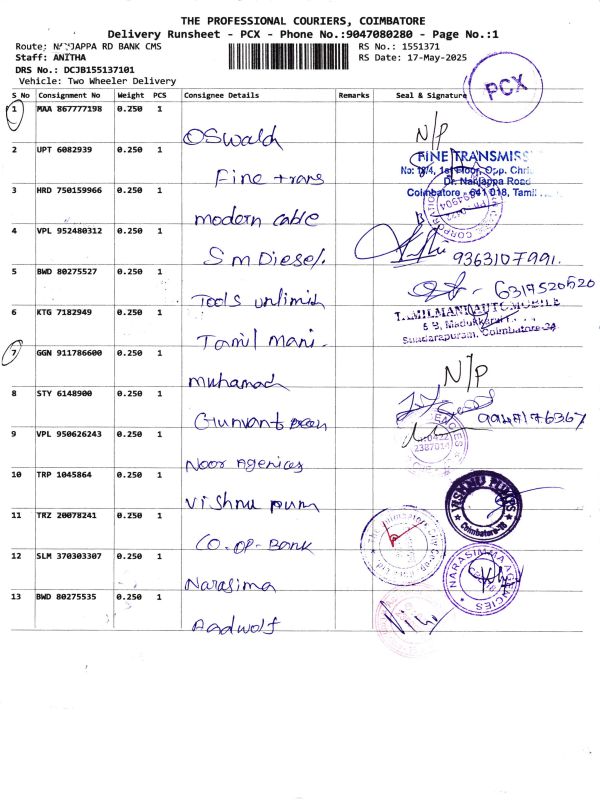 THE PROFESSIONAL COURIERS, COIMBATORE
Delivery Runsheet - PCX - Phone No.:9047080280 - Page No.:1
Route: NANJAPPA RD BANK CMS
RS No.: 1551371
Staff: ANITHA
RS Date: 17-May-2025
DRS No.: DCJB155137101
Vehicle: Two Wheeler Delivery
PCX
S No Consignment No Weight PCS Consignee Details Remarks Seal & Signature
1 MAA 867777198 0.250 1 Oswald N/P
2 UPT 6082939 0.250 1 Fine trans
FINE TRANSMISS
1st Floor, Opp. Chri
Dr. Nanjappa Road
Coimbatore - 641 018, Tamil
3 HRD 750159966 0.250 1 modern cable
4 VPL 952480312 0.250 1 Sm Diesel. 9363107991.
5 BWD 80275527 0.250 1 Tools unlimid 6317520520
6 KTG 7182949 0.250 1 Tamil mani.
TAMILMANI AUTOMOBILE
Sundarapuram, Coimbatore-24
7 GGN 911786600 0.250 1 muhamad N/P
8 STY 6148900 0.250 1 Gunvant
9 VPL 950626243 0.250 1 Noor Agenices
2387014
10 TRP 1045864 0.250 1 Vishnu pum
VISHNU PUMPS
Coimbatore-18
11 TRZ 20078241 0.250 1 CO.OP-Bank
12 SLM 370303307 0.250 1 Narasima
NARASIMMA AGENCIES
13 BWD 80275535 0.250 1 Aadwolf